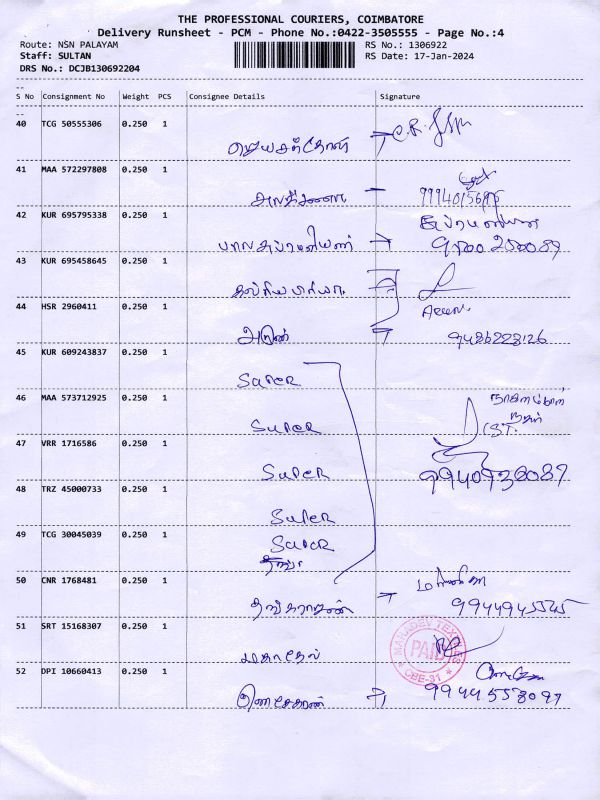 THE PROFESSIONAL COURIERS, COIMBATORE
Delivery Runsheet - PCM - Phone No.:0422-3505555 - Page No.:4
Route: NSN PALAYAM
RS No.: 1306922
Staff: SULTAN
RS Date: 17-Jan-2024
DRS No.: DCJB130692204
S No Consignment No Weight PCS Consignee Details Signature
40 TCG 50555306 0.250 1
41 MAA 572297808 0.250 1
42 KUR 695795338 0.250 1
பாலசுப்ரமணியன்
43 KUR 695458645 0.250 1
44 HSR 2960411 0.250 1
அருண் 9486228126
45 KUR 609243837 0.250 1
Super
46 MAA 573712925 0.250 1
Super
47 VRR 1716586 0.250 1
Super 9940936089
48 TRZ 45000733 0.250 1
Super
49 TCG 30045039 0.250 1
Super
50 CNR 1768481 0.250 1
தங்கராஜன்
51 SRT 15168307 0.250 1
MAHADEV TEXTILES
PAID
CBE-31
52 DPI 10660413 0.250 1
குணசேகரன் 9944558097